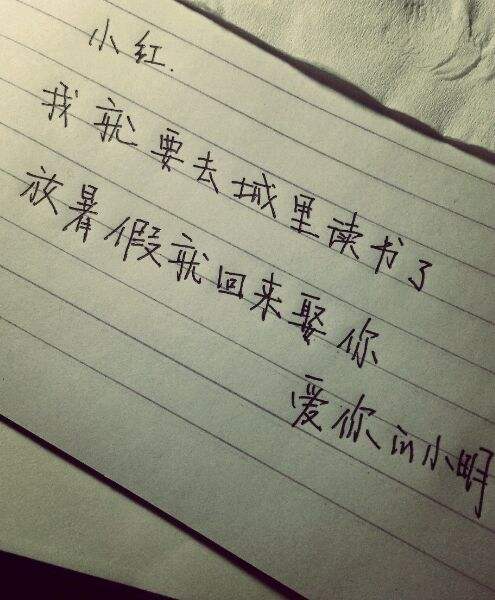 小红.
我就要去城里读书了
放暑假就回来娶你
爱你的小明